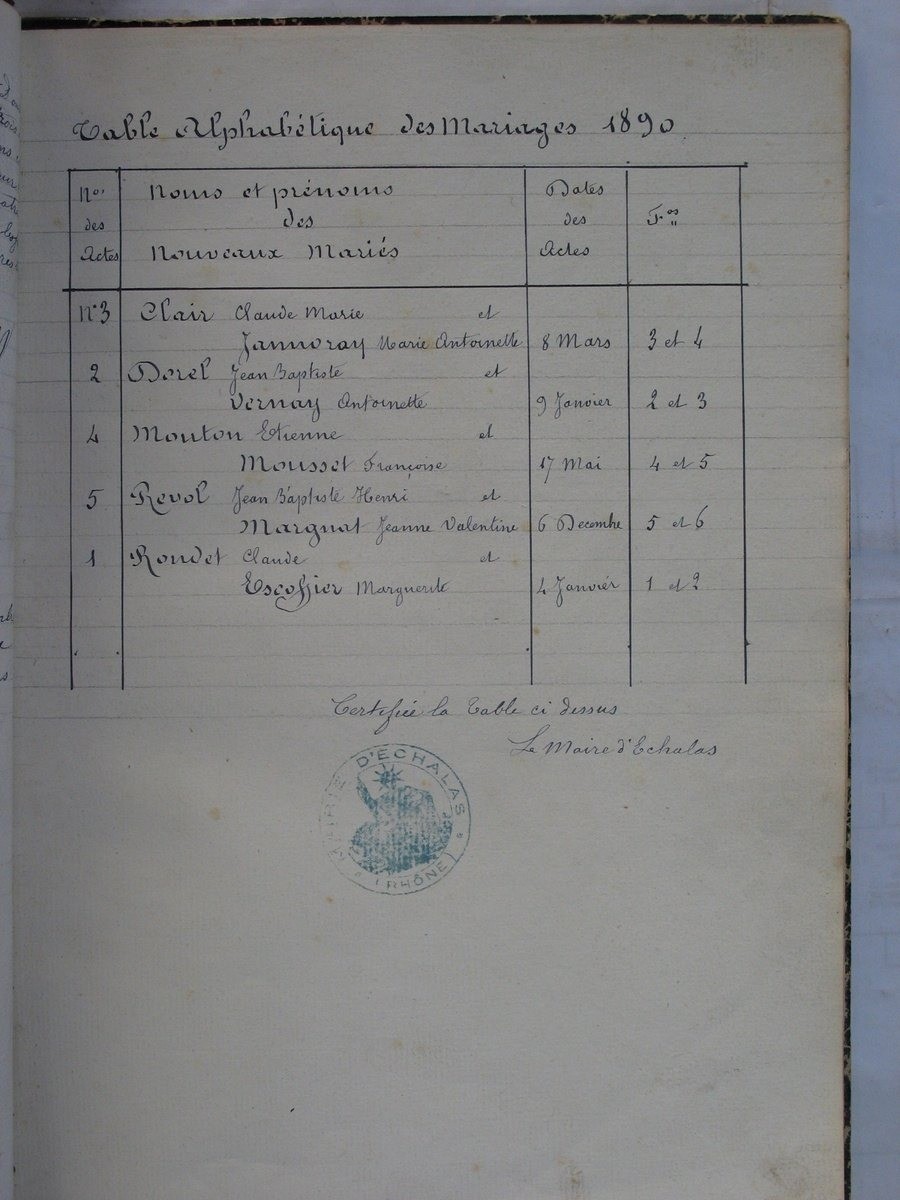 Table Alphabétique des Mariages 1890
Nos Noms et prénoms Dates
des des des Fos
Actes Nouveaux Mariés Actes
N°3 Clair Claude Marie et
Jannoray Marie Antoinette 8 Mars 3 et 4
2 Dorel Jean Baptiste et
Vernay Antoinette 9 Janvier 2 et 3
4 Mouton Etienne et
Mousset Françoise 17 Mai 4 et 5
5 Revol Jean Baptiste Henri et
Margnat Jeanne Valentine 6 Decembre 5 et 6
1 Rondet Claude et
Escoffier Marguerite 4 Janvier 1 et 2
Certifiée la Table ci dessus
Le Maire d'Echalas
MAIRIE D'ECHALAS
(RHÔNE)